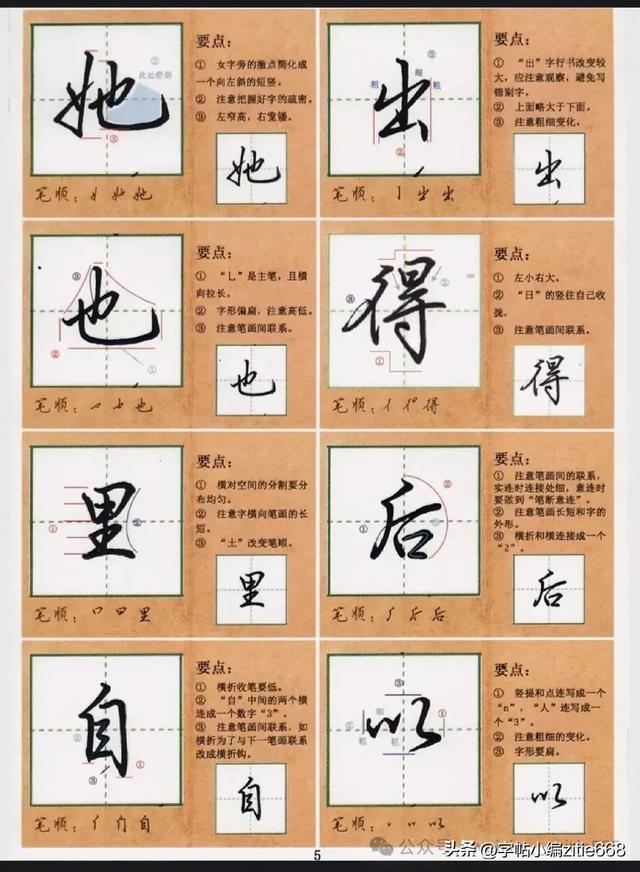 她
②
此处舒朗
①
③
要点：
① 女字旁的撇点简化成
一个向左斜的短竖。
② 注意把握好字的疏密。
③ 左窄高，右宽矮。
她
笔顺：
她
出
③
粗
细
粗
②
要点：
① “出”字行书改变较
大，应注意观察，避免写
错别字。
② 上面略大于下面。
③ 注意粗细变化。
出
笔顺：
出
也
③
②
①
要点：
① “乚”是主笔，且横
向拉长。
② 字形偏扁，注意高低。
③ 注意笔画间联系。
也
笔顺：
也
得
③
②
①
要点：
① 左小右大。
② “日”的竖往自己收
拢。
③ 注意笔画间联系。
得
笔顺：
得
里
①
②
要点：
① 横对空间的分割要分
布均匀。
② 注意字横向笔画的长
短。
③ “土”改变笔顺。
里
笔顺：口 曰 里
后
②
①
③
要点：
① 注意笔画间的联系，
实连时连接处细，意连时
要做到“笔断意连”。
② 注意笔画长短和字的
外形。
③ 横折和横连接成一个
“2”。
后
笔顺：
后
自
②
①
③
要点：
① 横折收笔要低。
② “自”中间的两个横
连成一个数字“3”。
③ 注意笔画间联系，如
横折为了与下一笔画联系
改成横折钩。
自
笔顺：
自
以
③
②
细
粗
粗
①
要点：
① 竖提和点连写成一个
“n”，“人”连写成一
个“3”。
② 注意粗细的变化。
③ 字形要扁。
以
笔顺：
以
5
公众号
头条@字帖小编zitie668